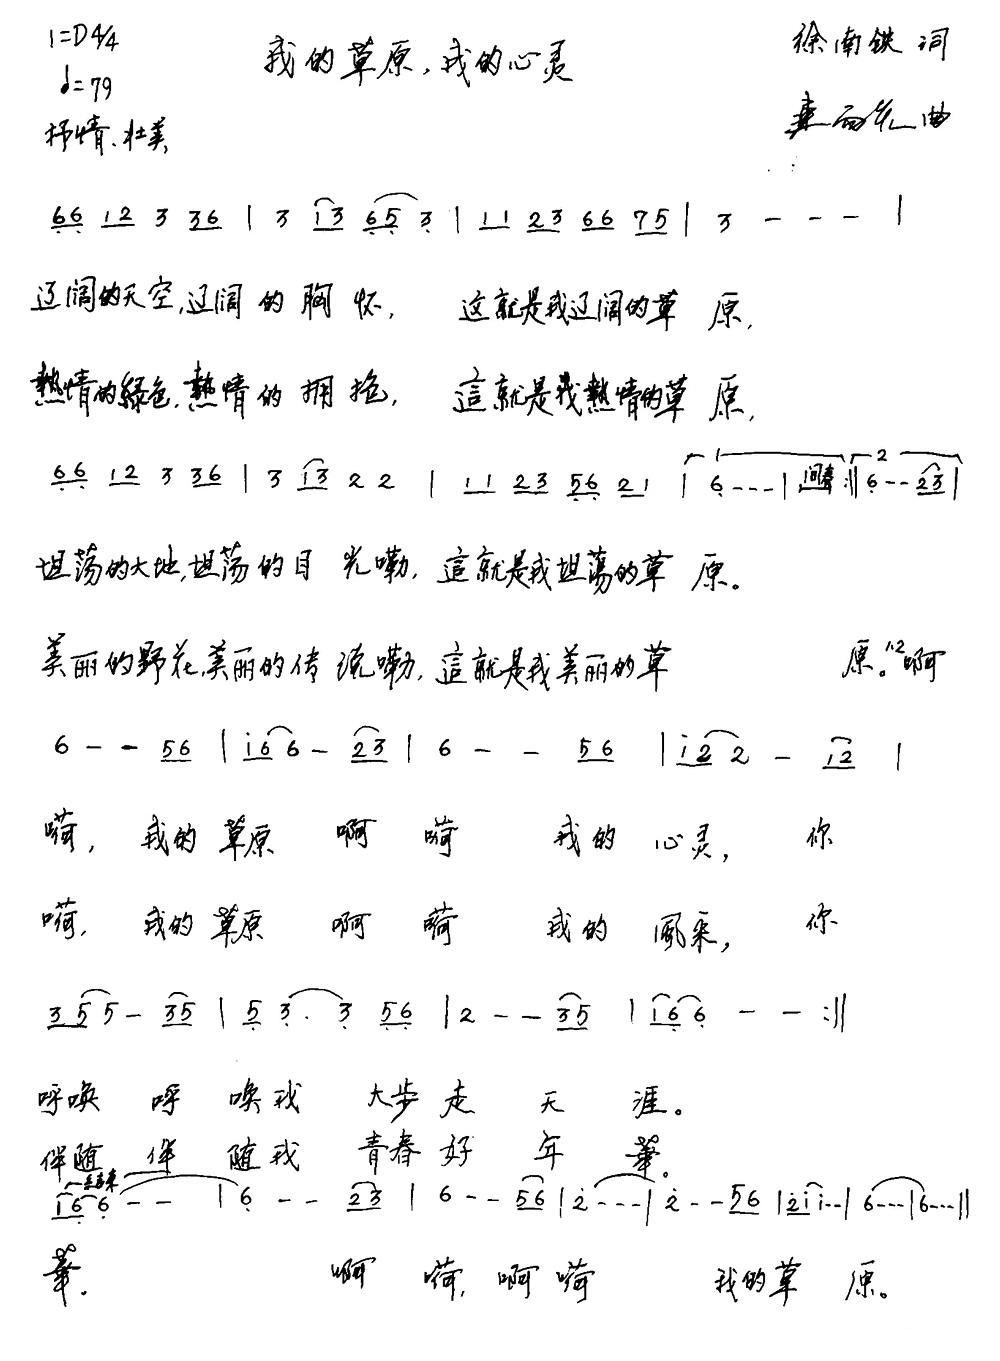 1=D 4/4
我的草原,我的心灵
徐南铁 词
♩=79
抒情、壮美
曲
66 12 3 36 | 3 i3 65 3 | 11 23 66 75 | 3 - - - |
辽阔的天空,辽阔的胸怀, 这就是我辽阔的草原,
熱情的綠色,熱情的拥抱, 這就是我熱情的草原,
66 12 3 36 | 3 13 2 2 | 11 23 56 21 | 6 - - - | 间奏 :|| 6 - - 23 |
坦荡的大地,坦荡的目光嘞,這就是我坦蕩的草原。
美丽的野花,美丽的传说嘞,這就是我美丽的草原。1.2啊
6 - - 56 | i6 6 - 23 | 6 - - 56 | i2 2 - 12 |
嗬, 我的草原 啊 嗬 我的 心灵, 你
嗬, 我的草原 啊 嗬 我的 風采, 你
3 5 5 - 35 | 5 3 . 3 56 | 2 - - 35 | 16 6 - - :||
呼唤 呼 唤我 大步走 天 涯。
伴随 伴 随我 青春好 年 華。
结束
16 6 - - | 6 - - 23 | 6 - - 56 | 2 - - - | 2 - - 56 | 2i i - - | 6 - - - | 6 - - - ||
華。 啊 嗬,啊嗬 我的草 原。